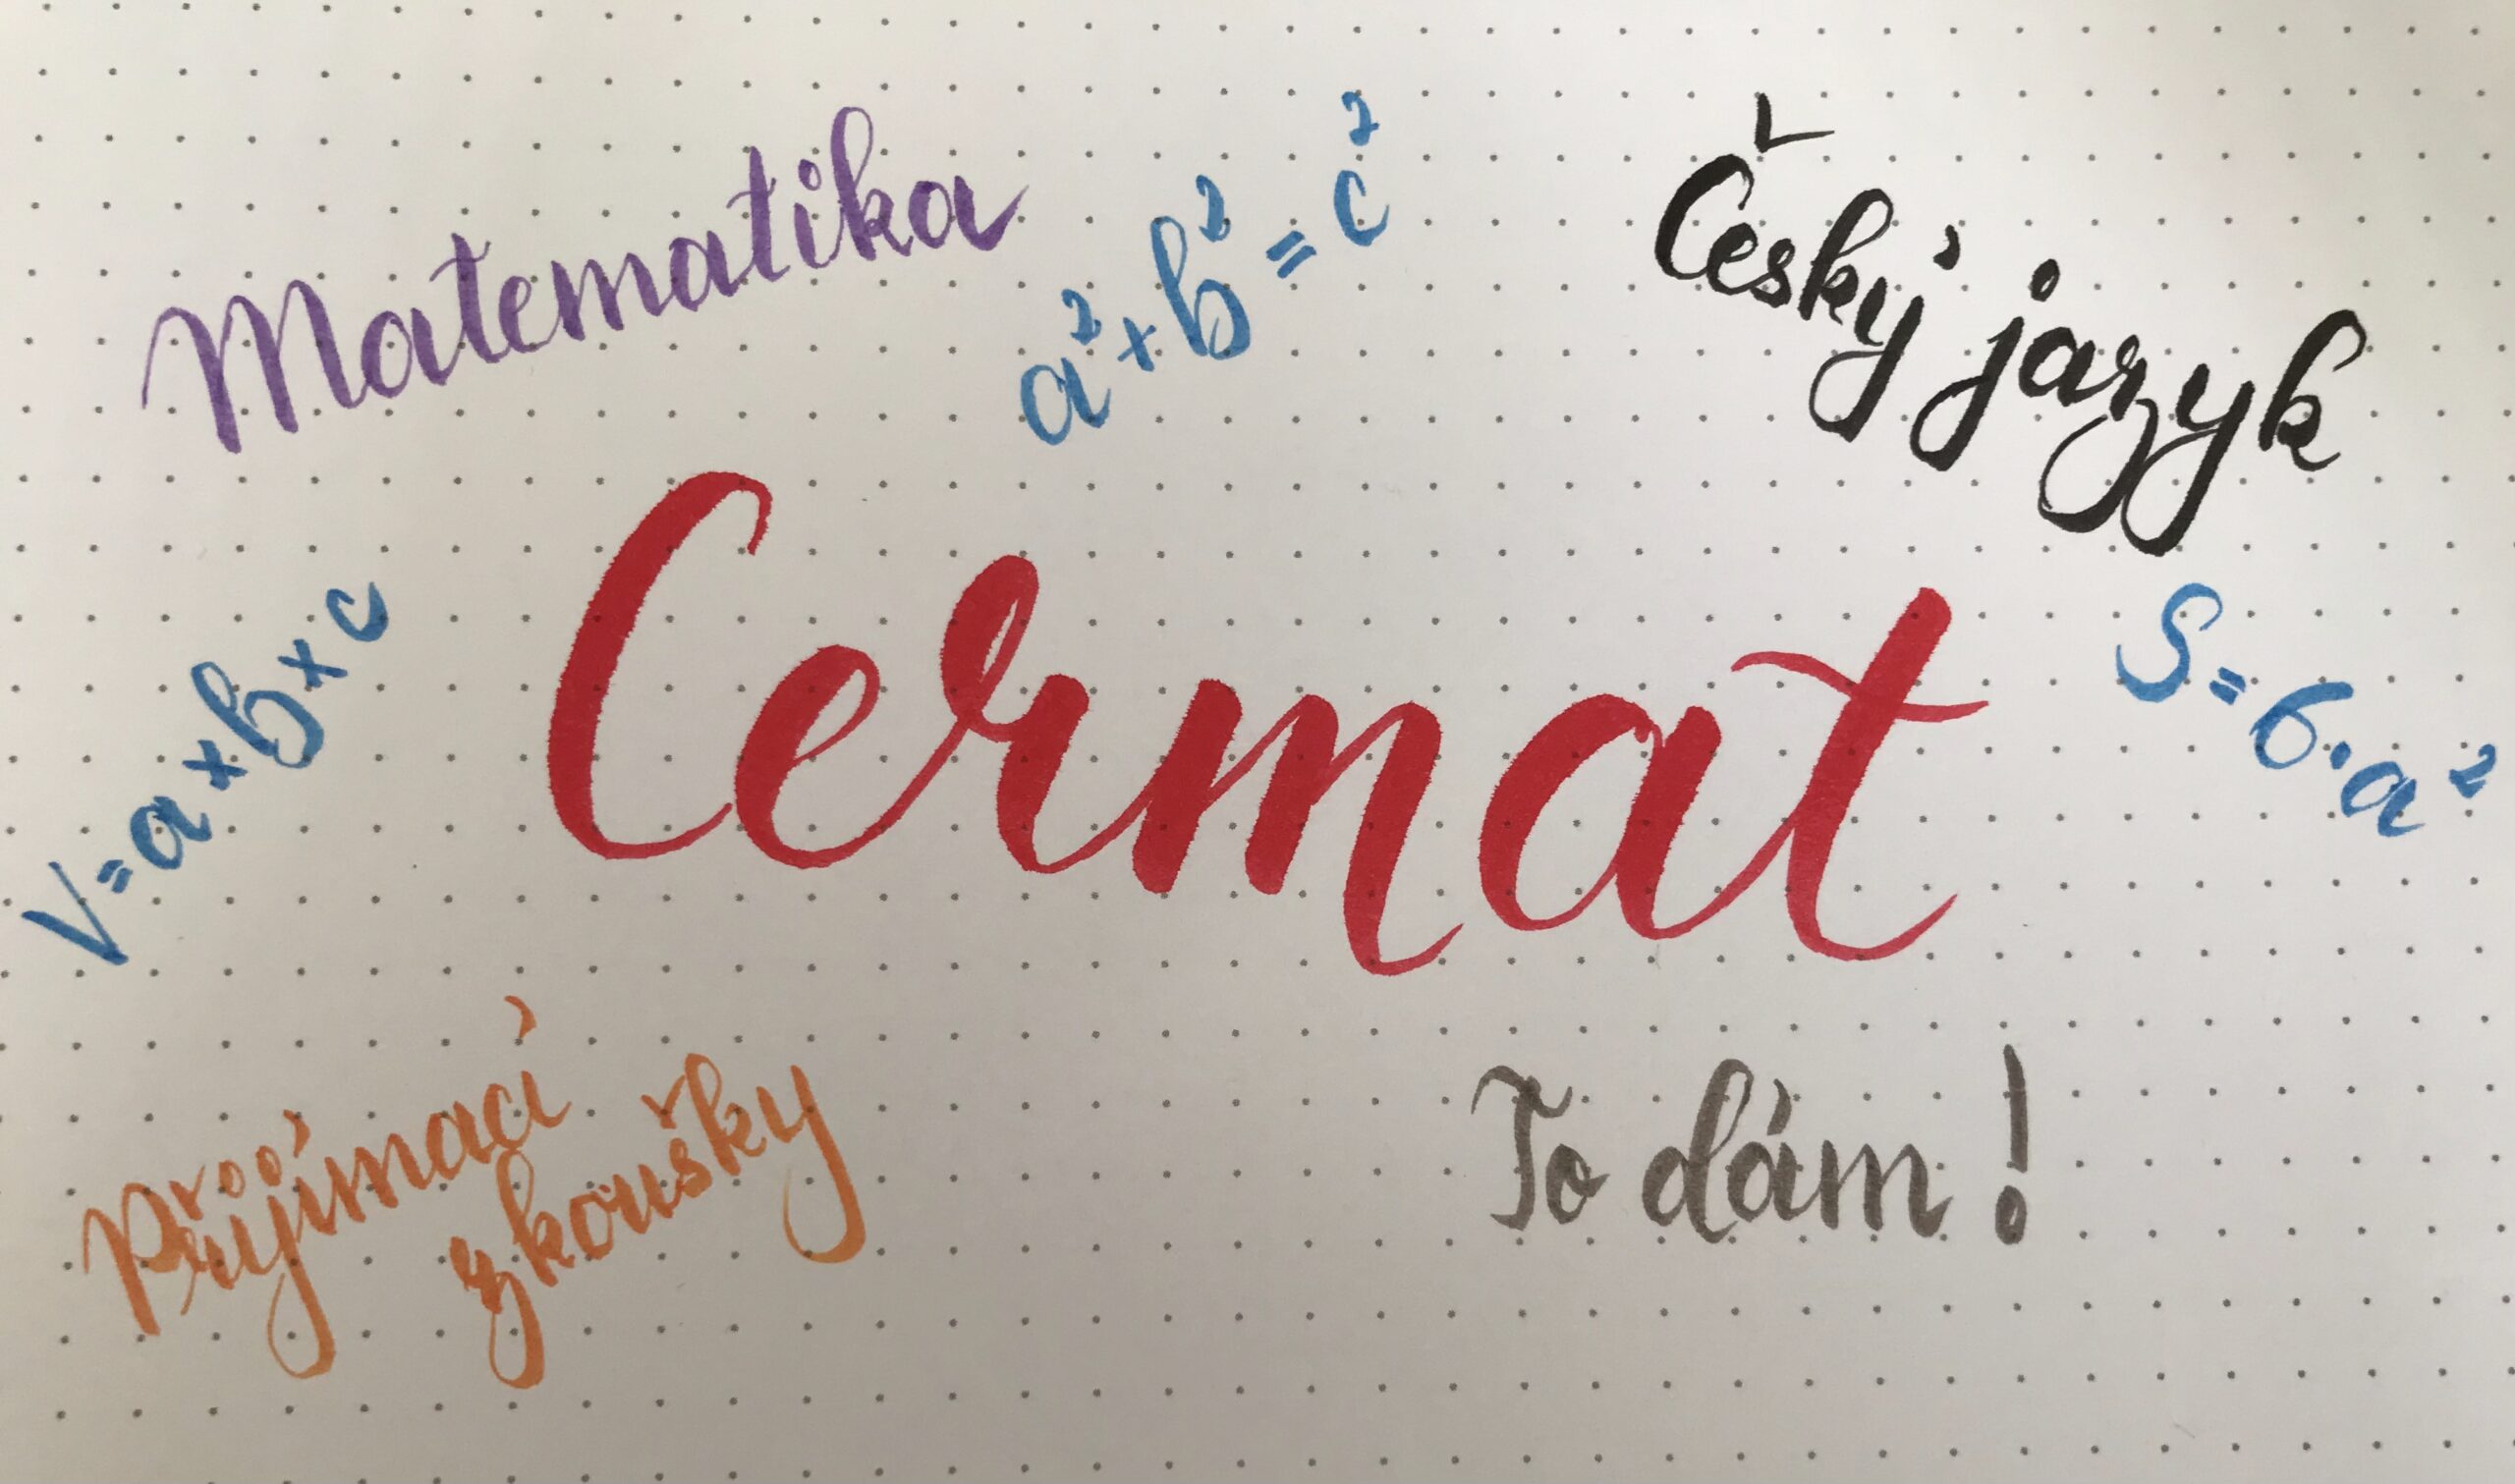 Matematika
a²+b²=c²
Český jazyk
Cermat
V=a×b×c
S=6·a²
Přijímací
zkoušky
To dám!